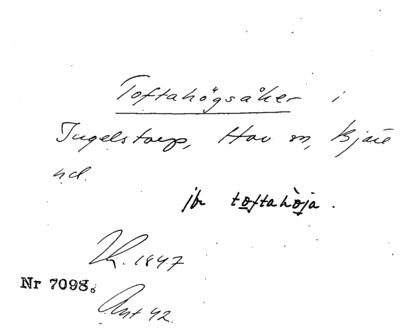 Toftahögsåker i
Ingelstorp, Hov sn, Bjäre
hd.
jbr toftahöja.
1847
Nr 7098.
Ant 42.